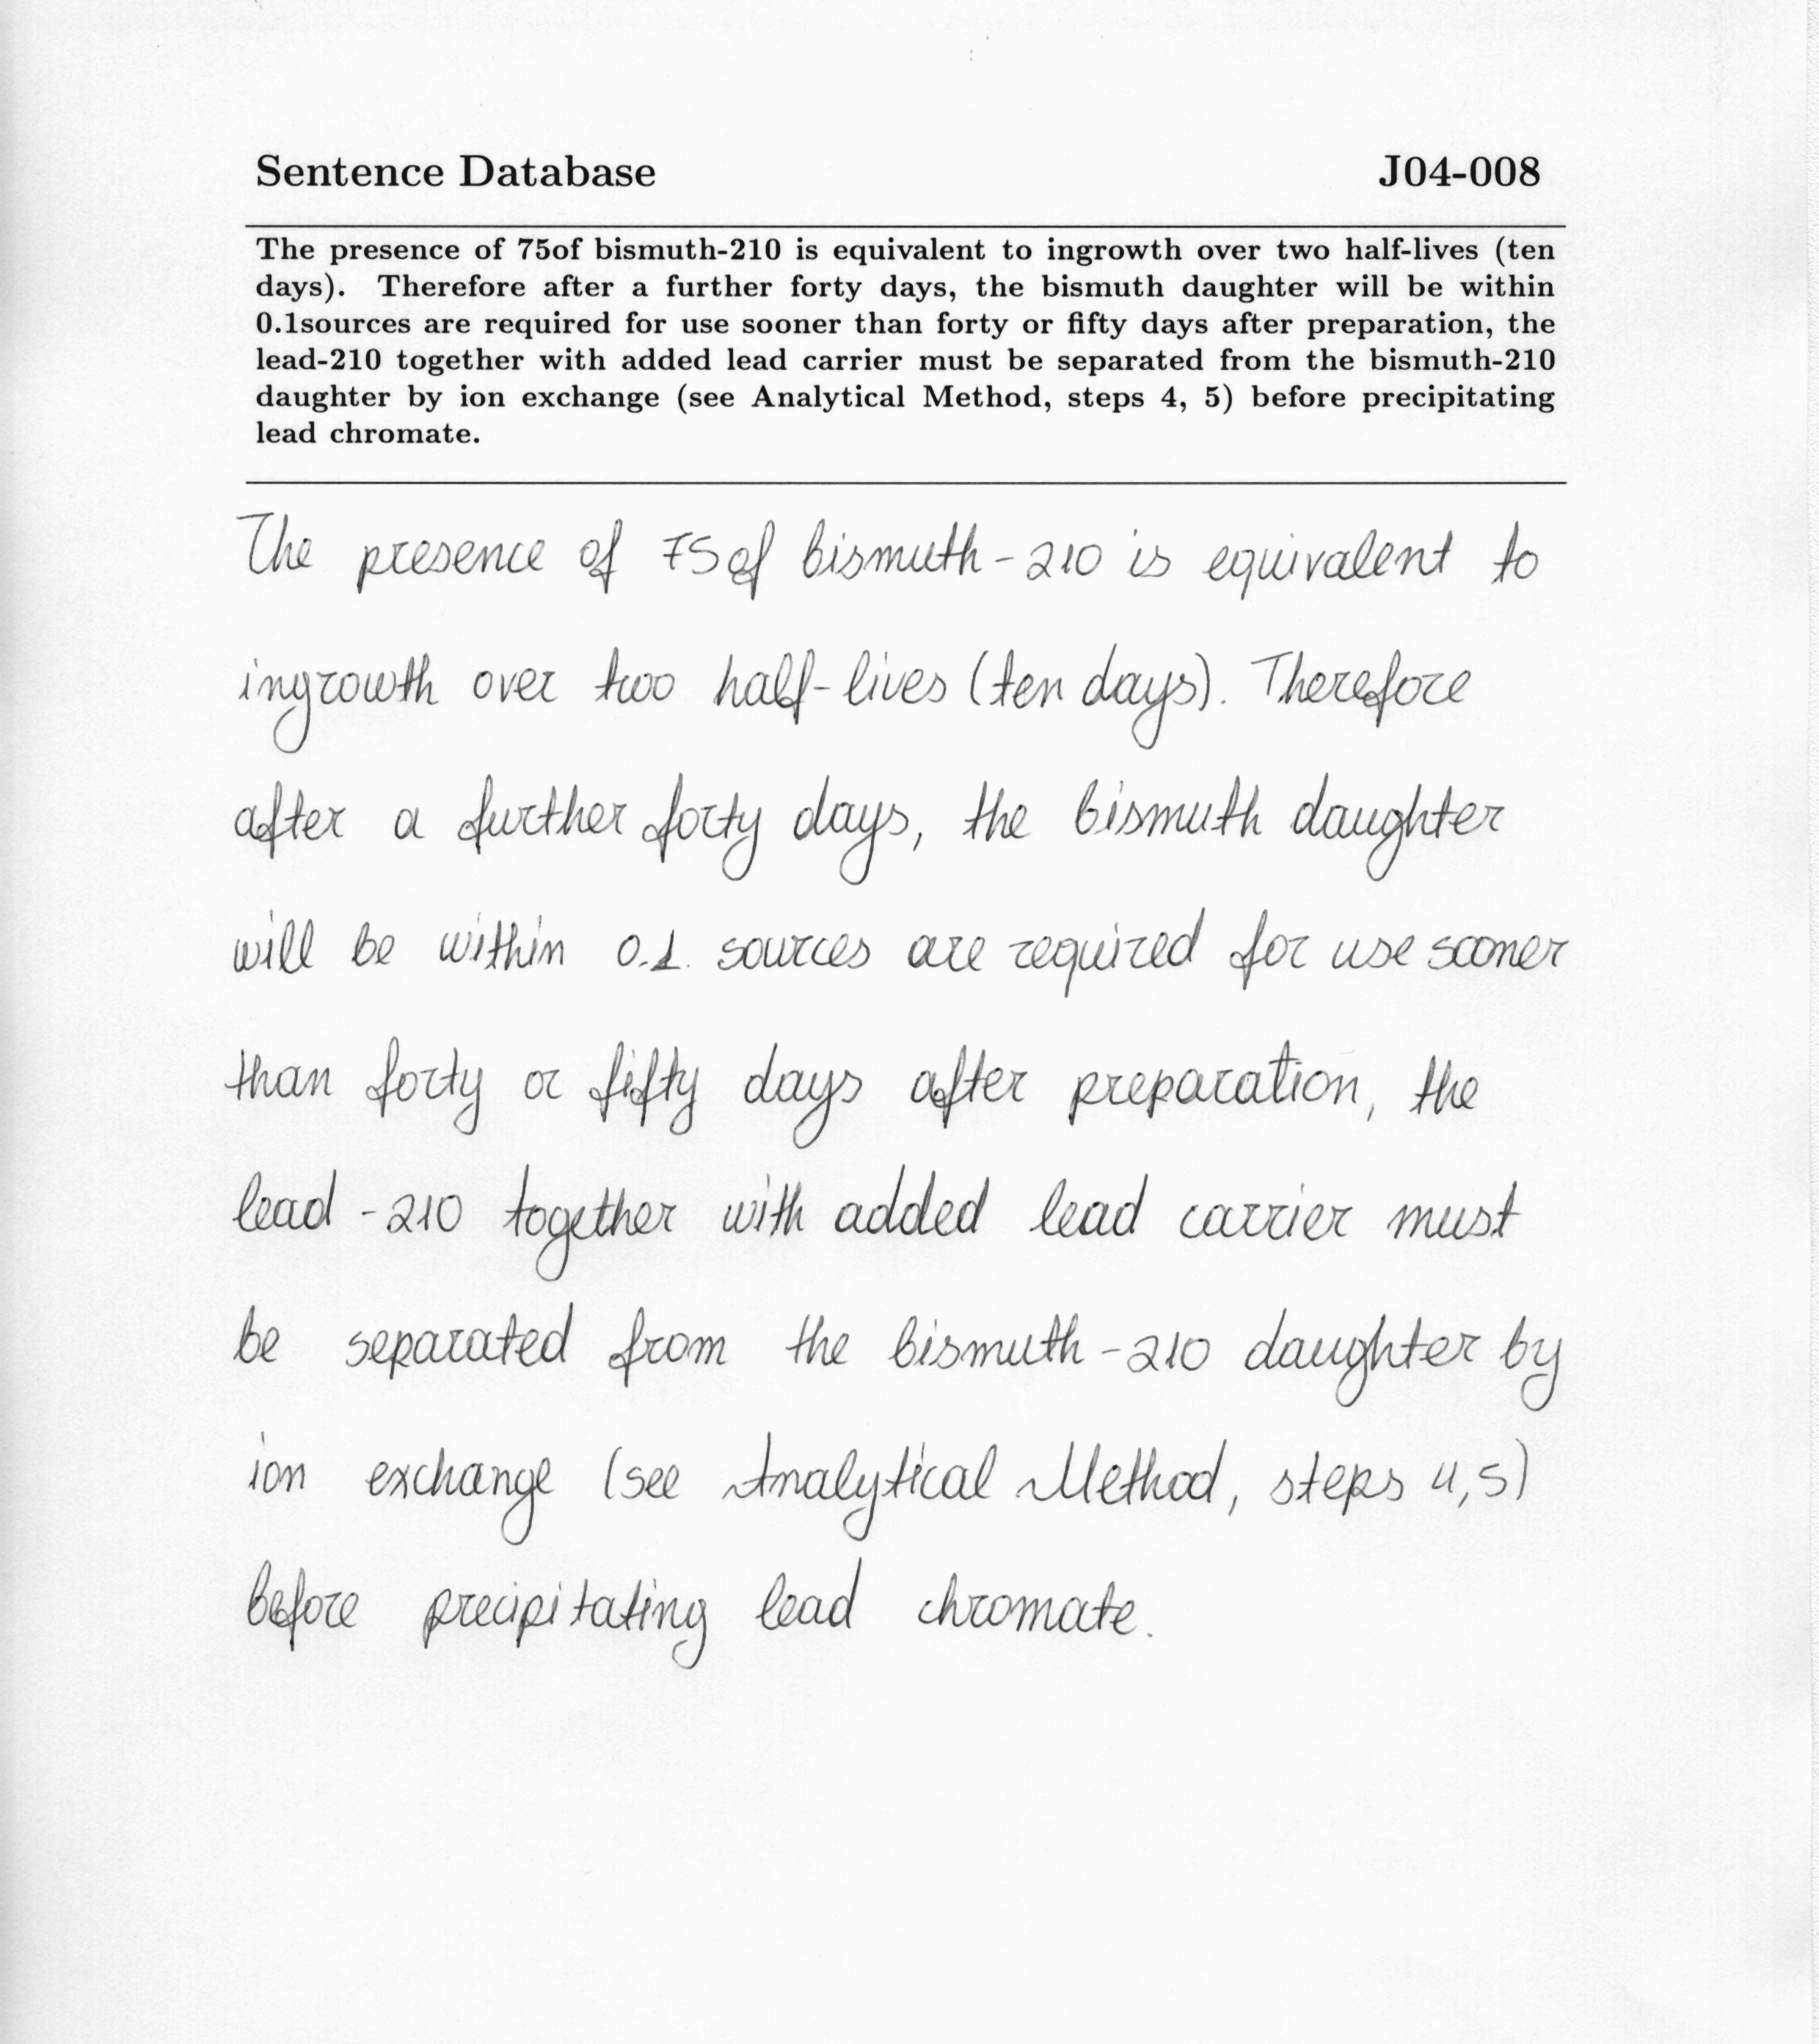 Sentence Database J04-008
The presence of 75of bismuth-210 is equivalent to ingrowth over two half-lives (ten
days). Therefore after a further forty days, the bismuth daughter will be within
0.1sources are required for use sooner than forty or fifty days after preparation, the
lead-210 together with added lead carrier must be separated from the bismuth-210
daughter by ion exchange (see Analytical Method, steps 4, 5) before precipitating
lead chromate.
The presence of 75of bismuth-210 is equivalent to
ingrowth over two half-lives (ten days). Therefore
after a further forty days, the bismuth daughter
will be within 0.1. sources are required for use sooner
than forty or fifty days after preparation, the
lead-210 together with added lead carrier must
be separated from the bismuth-210 daughter by
ion exchange (see Analytical Method, steps 4,5)
before precipitating lead chromate.